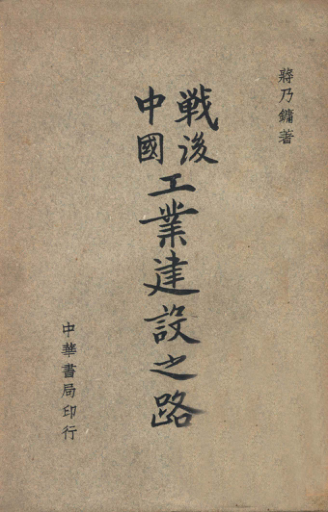 蔣乃鏞著
戰後
中國
工業建設之路
中華書局印行